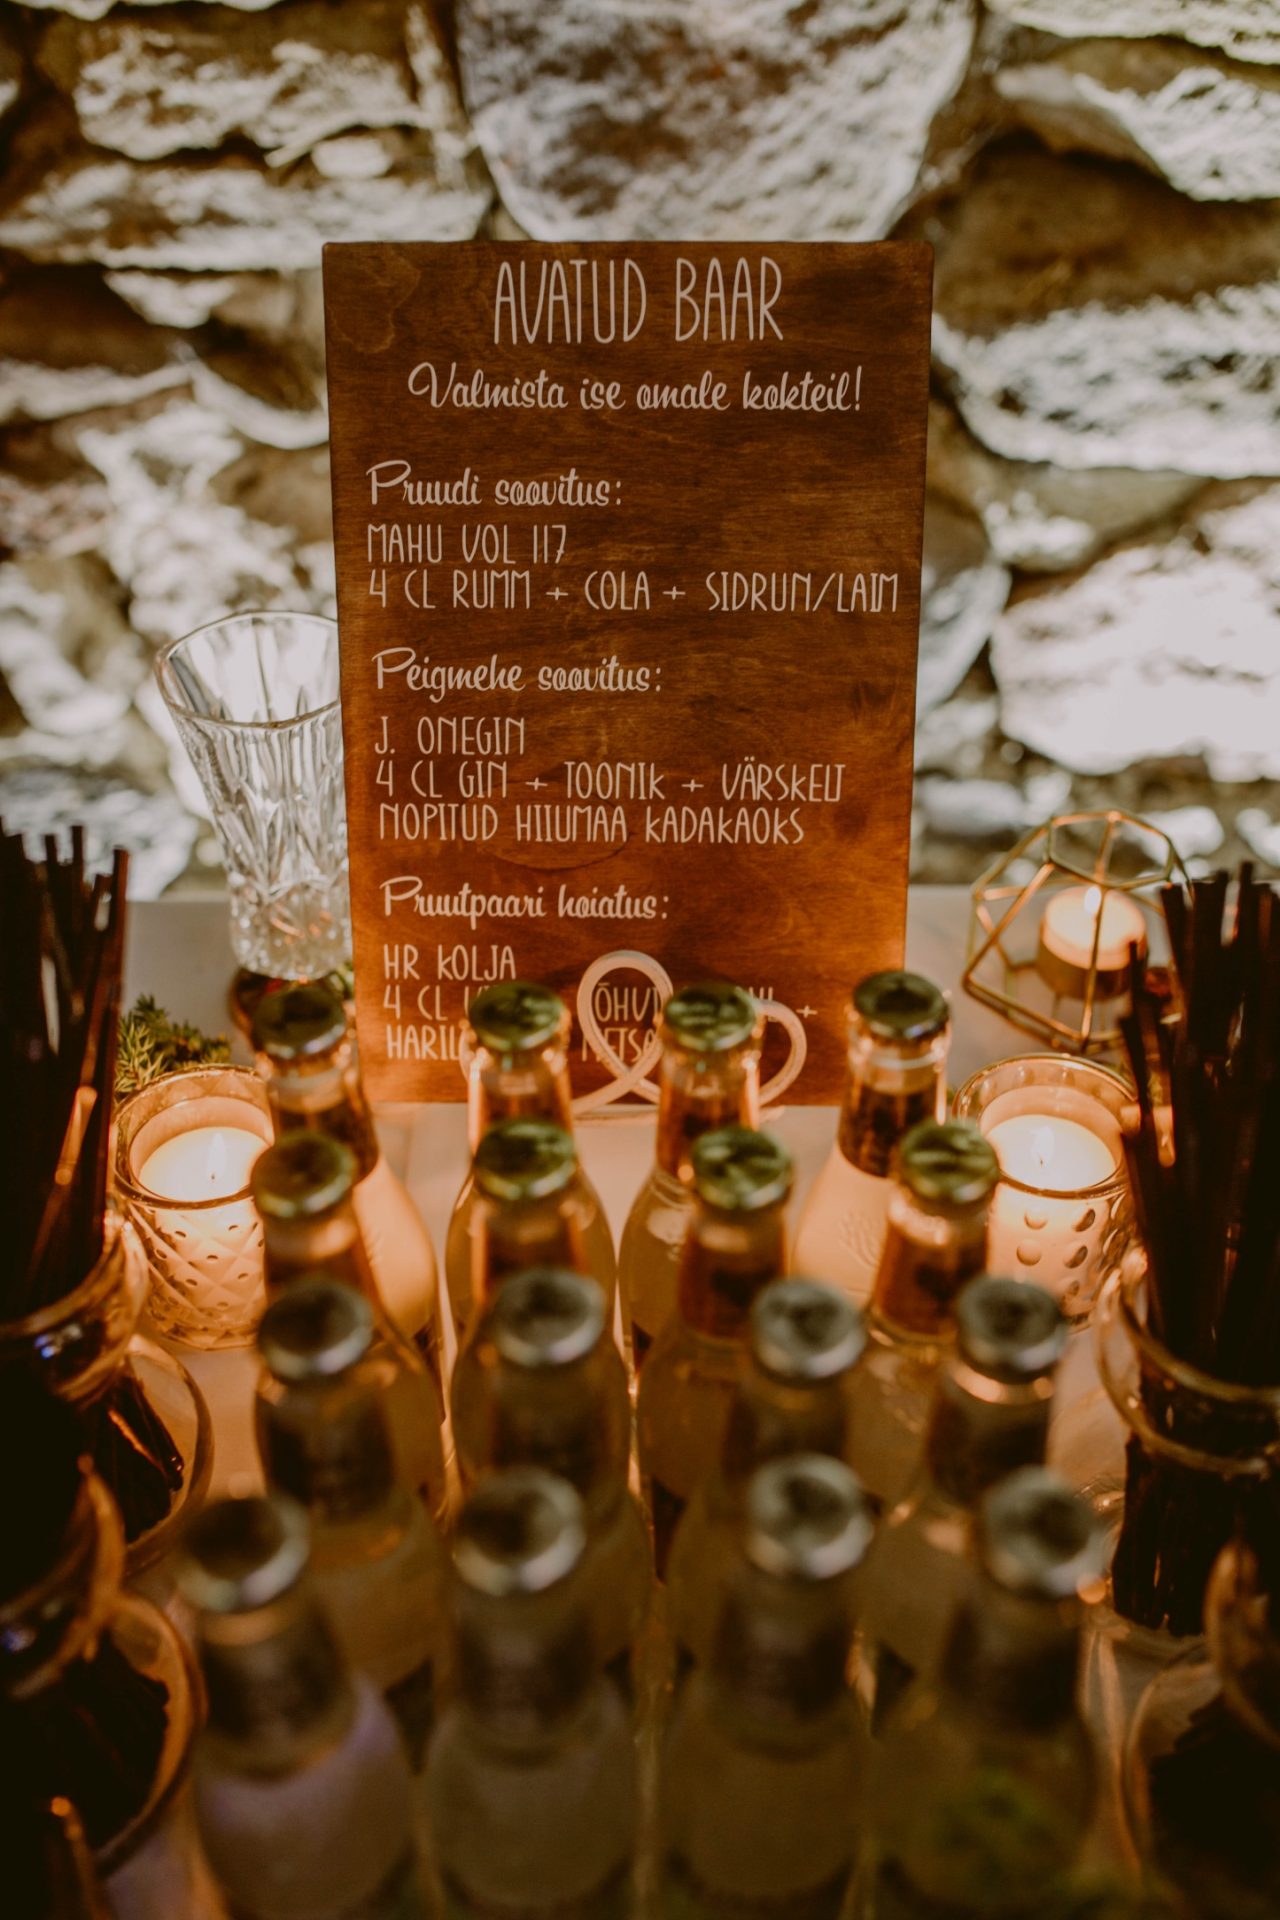 AVATUD BAAR
Valmista ise omale kokteil!
Pruudi soovitus:
MAHU VOL 117
4 CL RUMM + COLA + SIDRUN/LAIM
Peigmehe soovitus:
J. ONEGIN
4 CL GIN + TOONIK + VÄRSKELT
NOPITUD HIIUMAA KADAKAOKS
Pruutpaari hoiatus:
HR KOLJA
4 CL +